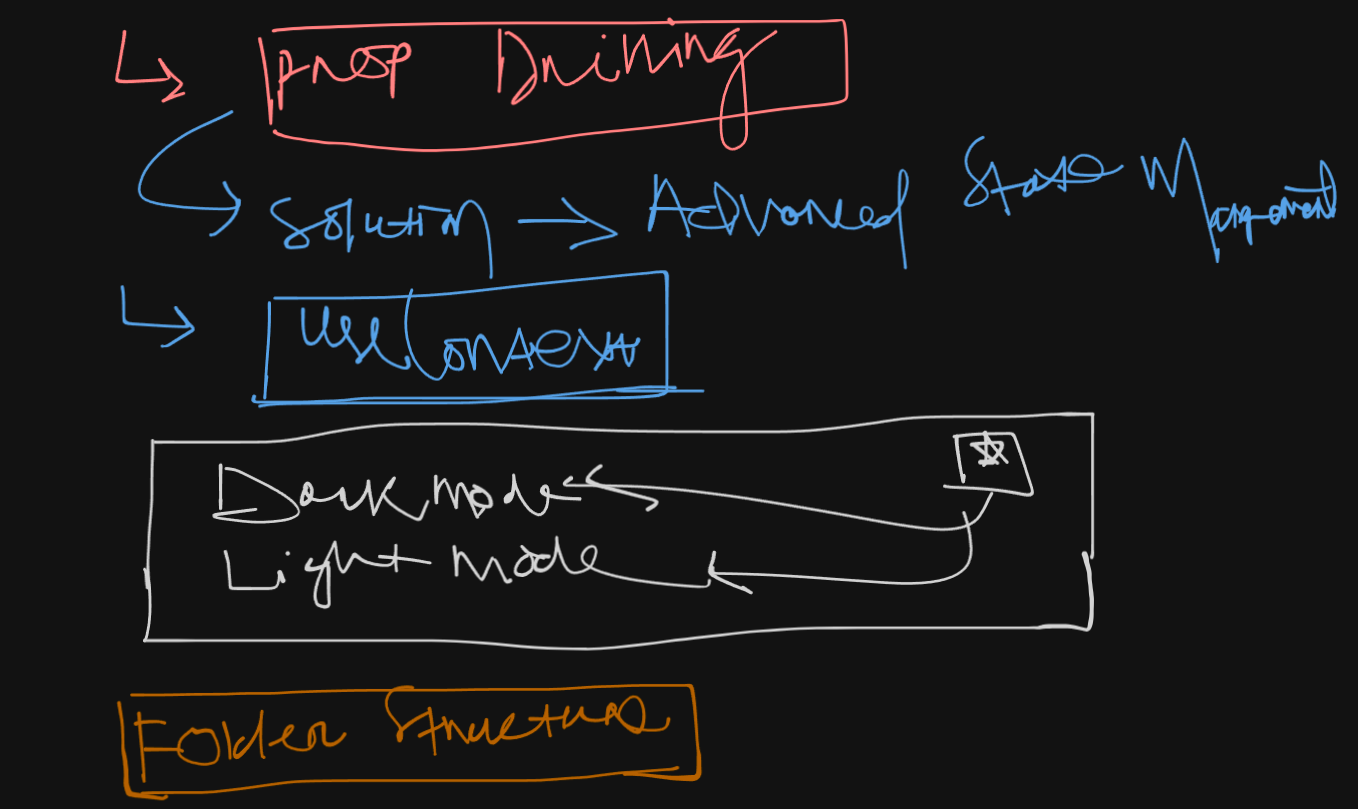 Prop Drilling
Solution → Advanced State Management
useContext
Dark mode
Light mode
Folder Structure